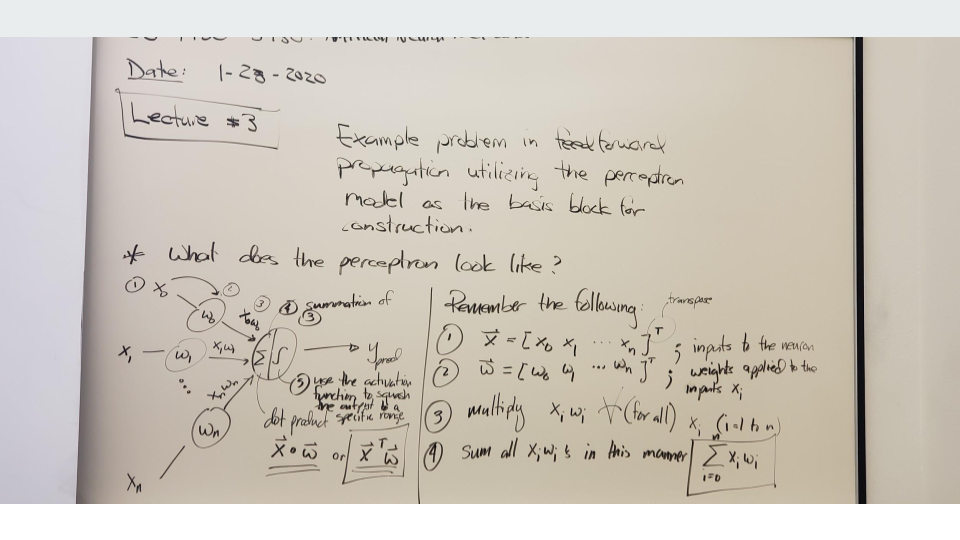 Date: 1-28-2020
Lecture #3
Example problem in feedforward
propagation utilizing the perceptron
model as the basis block for
construction.
* What does the perceptron look like?
① x₀ ②
w₀ x₀w₀ ③ ④ summation of ③
x₁ w₁ x₁w₁ Σ ∫ y_pred
... xₙwₙ
⑤ use the activation
function to squash
the output to a
specific range
wₙ
dot product
x⃗ • w⃗ or x⃗ᵀw⃗
xₙ
Remember the following: transpose
① x⃗ = [x₀ x₁ ... xₙ]ᵀ ; inputs to the neuron
② w⃗ = [w₀ w₁ ... wₙ]ᵀ ; weights applied to the
inputs xᵢ
③ multiply xᵢwᵢ ∀ (for all) xᵢ (i=1 to n)
④ Sum all xᵢwᵢ's in this manner
n
Σ xᵢwᵢ
i=0